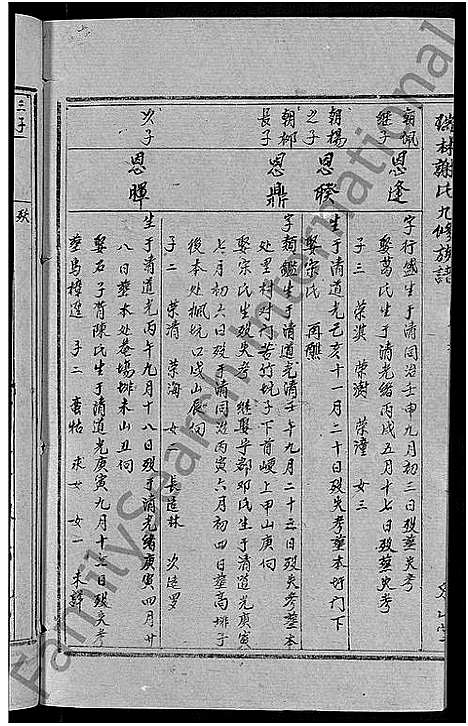 瑞林謝氏九修族譜
朝佩
继子
恩逢
字行盛生于清同治壬申九月初三日殁葬失考
娶葛氏生于清光绪丙戌五月十七日殁葬失考
子三 荣淇 荣澍 荣潼 女三
朝楊
之子
恩暌
生于清道光己亥十一月二十日殁失考葬本圩門下
娶宋氏 再醮
朝柳
長子
恩鼎
字類鑑生于清道光壬午九月二十三日殁失考葬本
处里村对門苦竹坑子下首崠上甲山庚向
娶宋氏生殁失考 继娶平都邓氏生于清道光庚寅
七月初六日殁于清同治丙寅六月初四日葬高排子
後本处楓坑口戌山辰向
子二 荣清 荣海 女二 長适林 次适罗
次子
恩暉
生于清道光丙午九月十八日殁于清光绪庚寅四月廿
八日葬本处菴場排未山丑向
娶石子荷陳氏生于清道光庚寅九月十七日殁失考
葬馬接逕 子二 蛮牯 求女 女一 未詳
三子
FamilySearch International